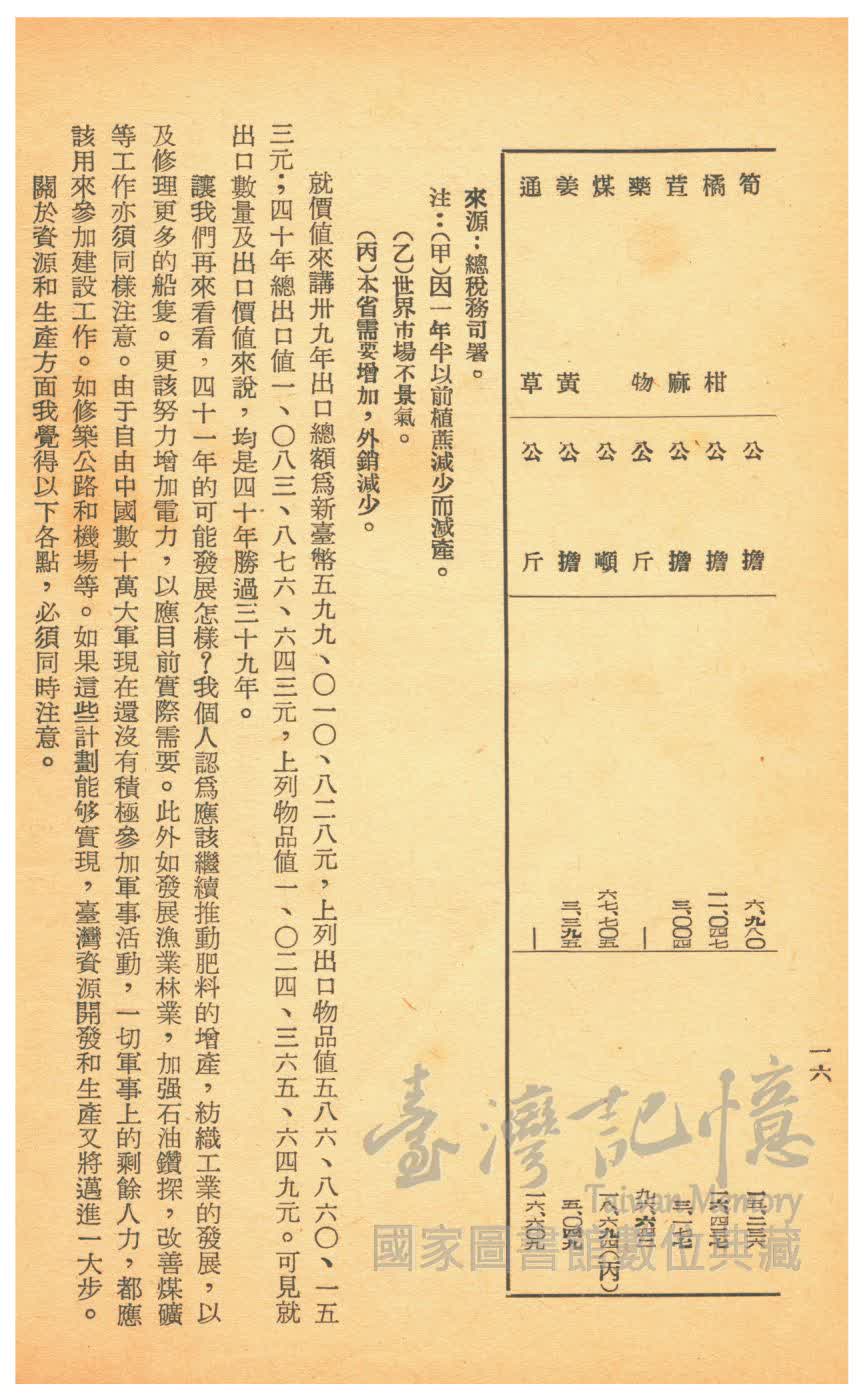 一六
筍 公擔 六、九八〇
橘柑 公擔 一一、〇四七
苴麻 公擔 三、〇〇四
藥物 公斤 —
煤 公噸 六七、七〇五 一八、六九四(丙)
姜黃 公擔 三、三九五 五、〇四九
通草 公斤 — 一六、六〇九
來源：總稅務司署。
注：(甲)因一年半以前植蔗減少而減產。
(乙)世界市場不景氣。
(丙)本省需要增加，外銷減少。
就價值來講卅九年出口總額爲新臺幣五九九、〇一〇、八二八元，上列出口物品值五八六、八六〇、一五
三元；四十年總出口值一、〇八三、八七六、六四三元，上列物品值一、〇二四、三六五、六四九元。可見就
出口數量及出口價值來說，均是四十年勝過三十九年。
讓我們再來看看，四十一年的可能發展怎樣？我個人認爲應該繼續推動肥料的增產，紡織工業的發展，以
及修理更多的船隻。更該努力增加電力，以應目前實際需要。此外如發展漁業林業，加强石油鑽探，改善煤礦
等工作亦須同樣注意。由于自由中國數十萬大軍現在還沒有積極參加軍事活動，一切軍事上的剩餘人力，都應
該用來參加建設工作。如修築公路和機場等。如果這些計劃能够實現，臺灣資源開發和生產又將邁進一大步。
關於資源和生產方面我覺得以下各點，必須同時注意。
臺灣記憶
Taiwan Memory
國家圖書館數位典藏